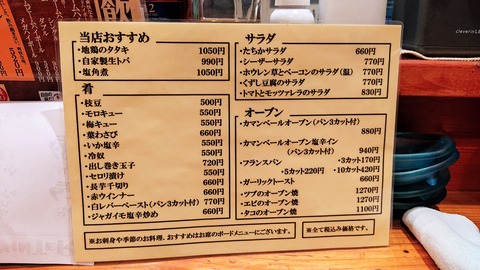 当店おすすめ
・地鶏のタタキ 1050円
・自家製生トバ 990円
・塩角煮 1050円
肴
・枝豆 500円
・モロキュー 550円
・梅キュー 550円
・葉わさび 660円
・いか塩辛 550円
・冷奴 550円
・出し巻き玉子 720円
・セロリ漬け 550円
・長芋千切り 660円
・赤ウインナー 660円
・白レバーペースト(パン3カット付) 770円
・ジャガイモ塩辛炒め 660円
サラダ
・たちかサラダ 660円
・シーザーサラダ 770円
・ホウレン草とベーコンのサラダ(温) 770円
・くずし豆腐のサラダ 770円
・トマトとモッツァレラのサラダ 830円
オーブン
・カマンベールオーブン(パン3カット付) 880円
・カマンベールオーブン塩辛イン
(パン3カット付) 940円
・フランスパン ・3カット170円
・5カット220円 ・10カット420円
・ガーリックトースト 660円
・ツブのオーブン焼 1270円
・エビのオーブン焼 1270円
・タコのオーブン焼 1100円
※お刺身や季節のお料理、おすすめはお席のボードメニューにございます。
※全て税込み価格です。